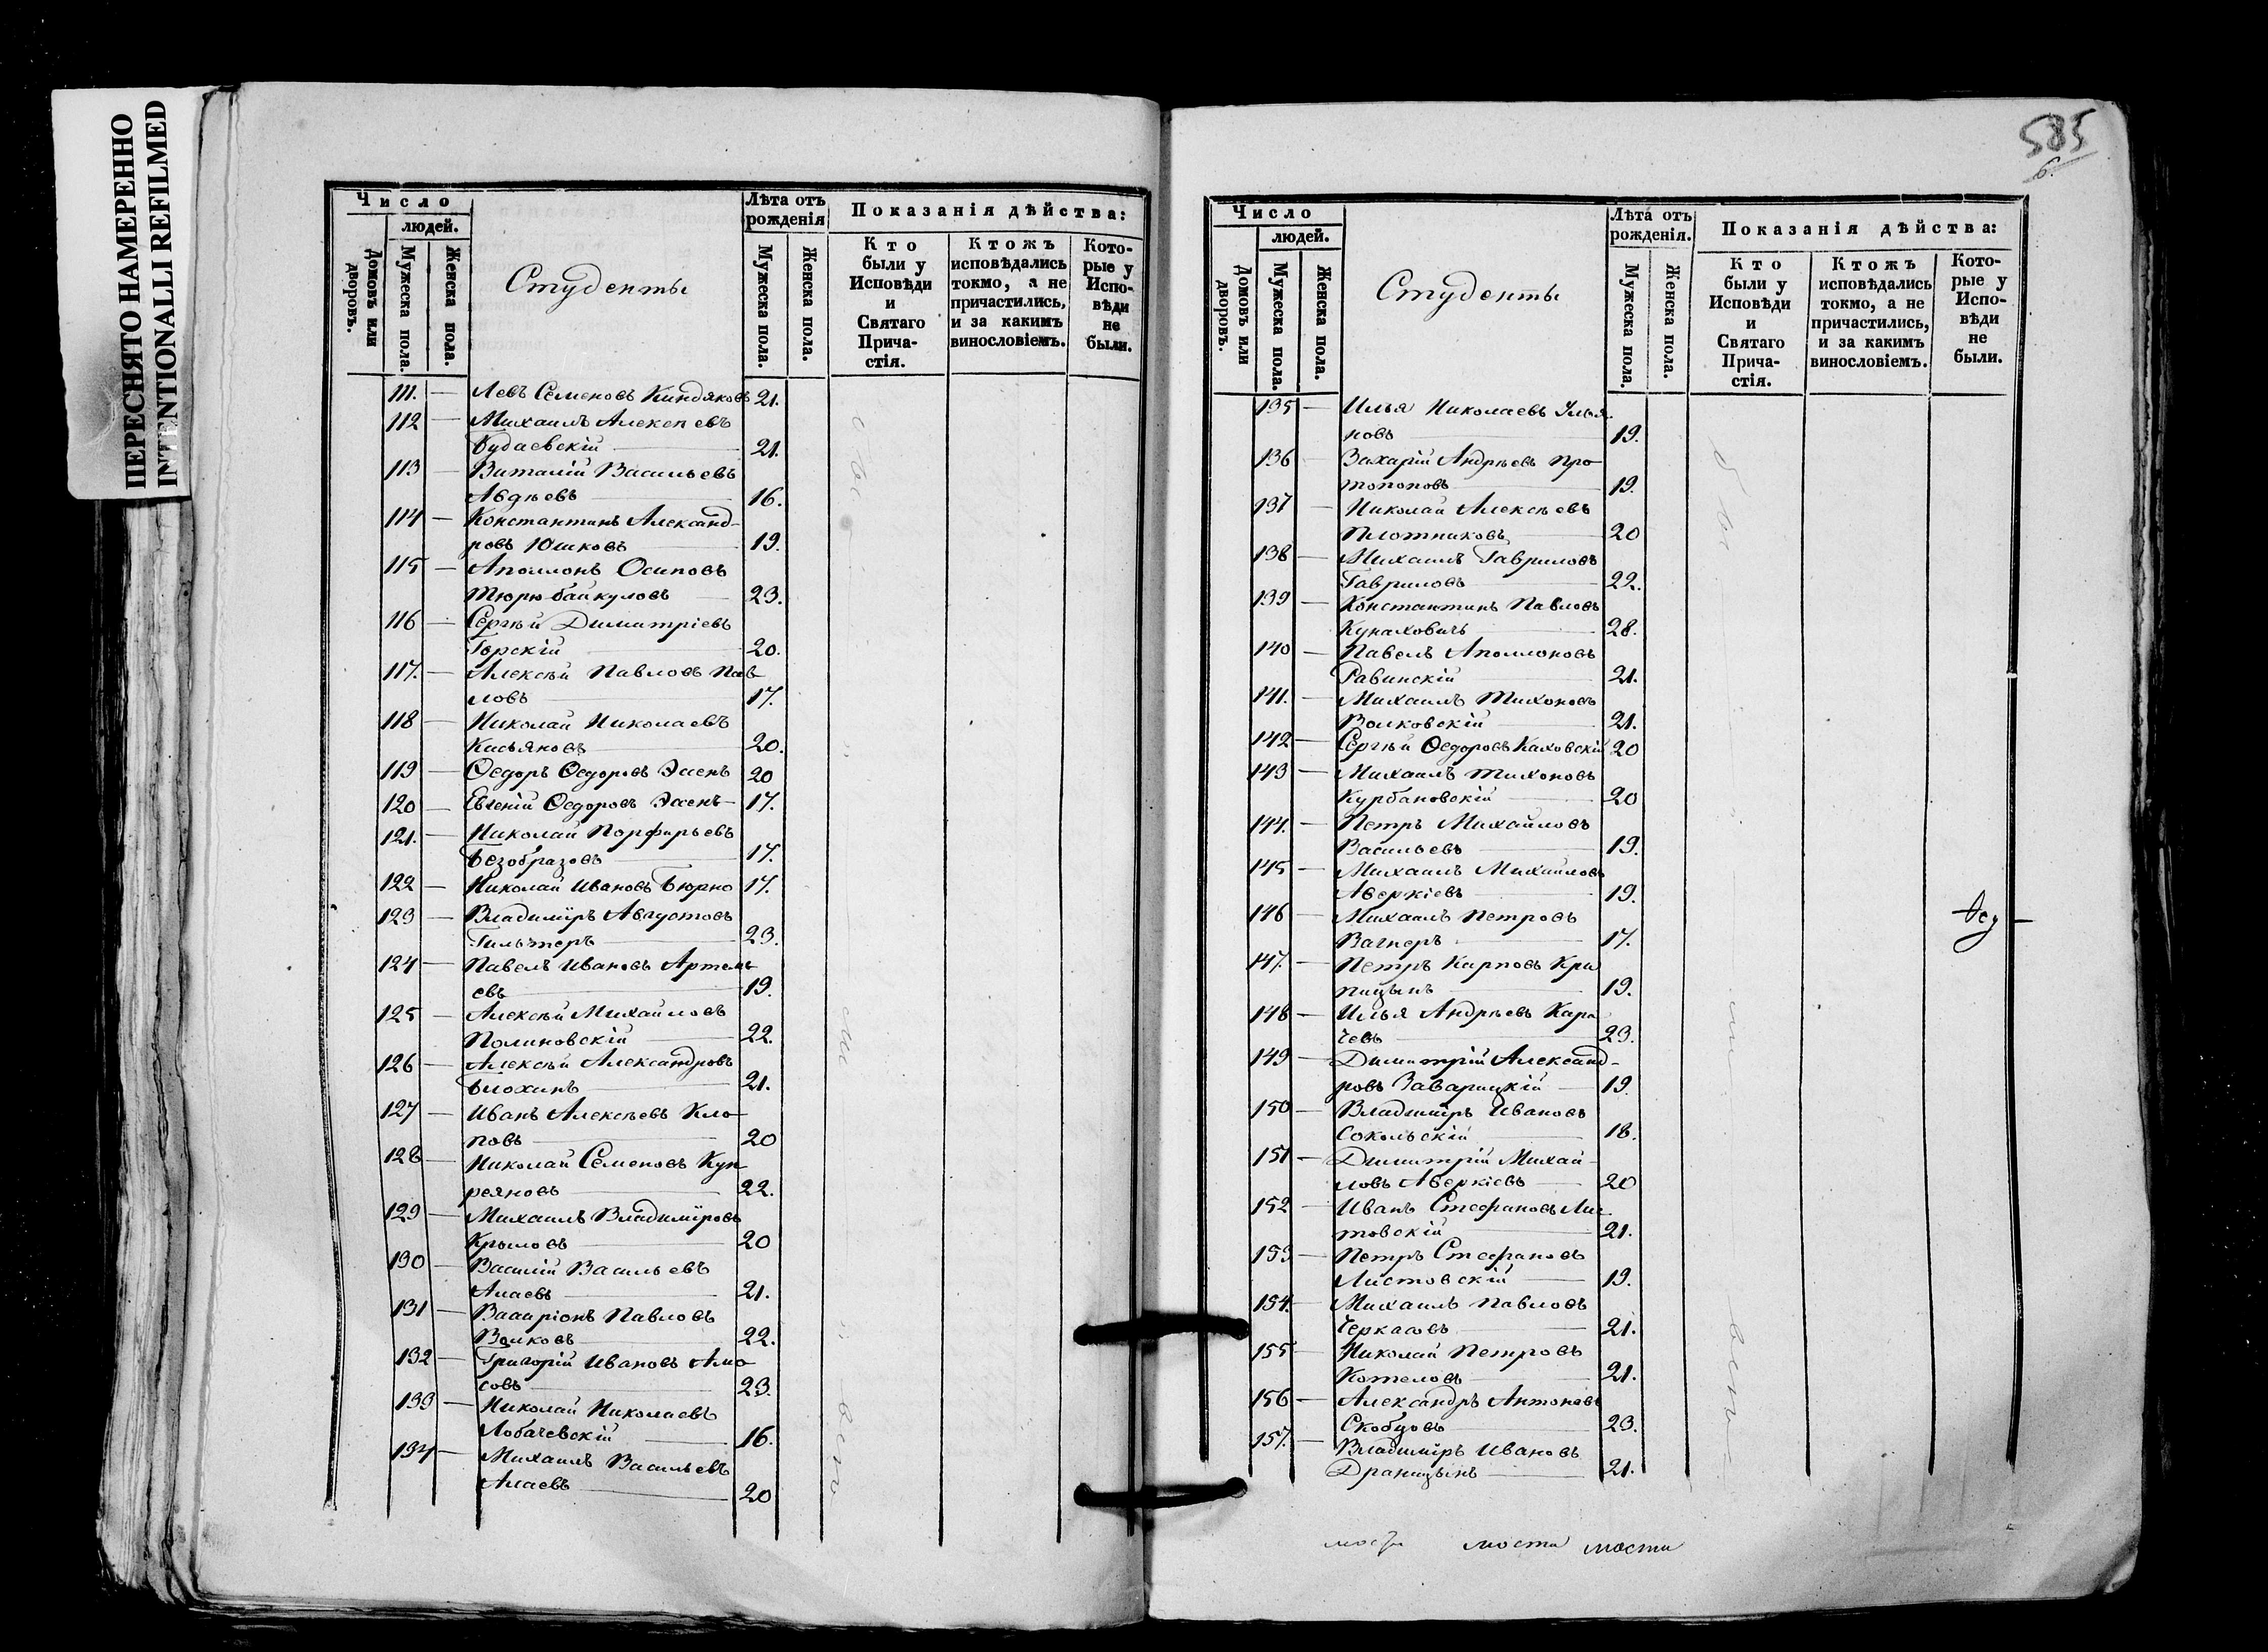 ПЕРЕСНЯТО НАМЕРЕННО
INTENTIONALLI REFILMED
Число
людей.
Домовъ или дворовъ.
Мужеска пола.
Женска пола.
Студенты
Лѣта отъ рожденія
Мужеска пола.
Женска пола.
Показанія дѣйства:
Кто были у Исповѣди и Святаго Прича-стія.
Ктожъ исповѣдались токмо, а не причастились, и за какимъ винословіемъ.
Кото-рые у Испо-вѣди не были.
111. — Левъ Семеновъ Киндяковъ 21.
112 — Михаилъ Алексѣевъ
Будаевскій 21.
113 — Виталій Васильевъ
Авдѣевъ 16.
114 — Константинъ Александ-
ровъ Юшковъ 19.
115 — Аполлонъ Осиповъ
Тюрюбайкуловъ 23.
116 — Сергѣй Димитріевъ
Горскій 20.
117. — Алексѣй Павловъ Пав
ловъ 17.
118 — Николай Николаевъ
Касьяновъ 20.
119 — Ѳедоръ Ѳедоровъ 20
120 — Евгеній Ѳедоровъ 17.
121. — Николай Порфирьевъ
Безобразовъ 17.
122 — Николай Ивановъ Бюрно 17.
123 — Владиміръ Августовъ
23.
124 — Павелъ Ивановъ Артемь
евъ 19.
125 — Алексѣй Михайловъ
Полиновскій 22.
126 — Алексѣй Александровъ
Блохинъ 21.
127 — Иванъ Алексѣевъ Кло
повъ 20
128 — Николай Семеновъ Куп
реяновъ 22.
129 — Михаилъ Владиміровъ
Крыловъ 20
130 — Василій Васильевъ
Алаевъ 21.
131 — Павловъ
Волковъ 22.
132 — Григорій Ивановъ Амо
совъ 23.
133 — Николай Николаевъ
Лобачевскій 16.
134 — Михаилъ Васильевъ
Алаевъ 20
585
6.
Число
людей.
Домовъ или дворовъ.
Мужеска пола.
Женска пола.
Студенты
Лѣта отъ рожденія.
Мужеска пола.
Женска пола.
Показанія дѣйства:
Кто были у Исповѣди и Святаго Прича-стія.
Ктожъ исповѣдались токмо, а не причастились, и за какимъ винословіемъ.
Кото-рые у Испо-вѣди не были.
135 — Илья Николаевъ Улья
новъ 19.
136 — Захарій Андрѣевъ Про
топоповъ 19.
137 — Николай Алексѣевъ
Плотниковъ 20
138 — Михаилъ Гавриловъ
Гавриловъ 22.
139 — Константинъ Павловъ
Кунаховичъ 28.
140 — Павелъ Аполлоновъ
Равинскій 21.
141. — Михаилъ Тихоновъ
Волковскій 21.
142 — Сергѣй Ѳедоровъ Каховскій 20
143 — Михаилъ Тихоновъ
Курбановскій 20
144. — Петръ Михайловъ
Васильевъ 19.
145 — Михаилъ Михайловъ
Аверкіевъ 19.
146 — Михаилъ Петровъ
Вагнеръ 17.
147. — Петръ Карповъ Кри
пицынъ 19.
148 — Илья Андрѣевъ Кара
чевъ 23.
149 — Димитрій Александ-
ровъ Заварицкій 19.
150 — Владиміръ Ивановъ
Сокольскій 18.
151 — Димитрій Михай-
ловъ Аверкіевъ 20
152 — Иванъ Стефановъ Лис
товскій 21.
153 — Петръ Стефановъ
Листовскій 19.
154. — Михаилъ Павловъ
Черкасовъ 21.
155 — Николай Петровъ
Котеловъ 21.
156 — Александръ Антоновъ
Скобцовъ 23.
157. — Владиміръ Ивановъ
Драницынъ 21.
мости мости